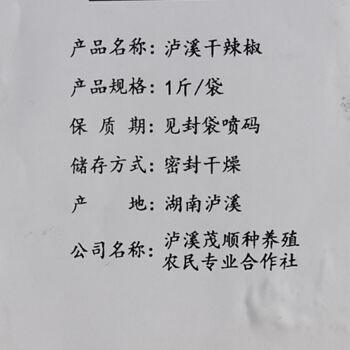 产品名称：泸溪干辣椒
产品规格：1斤/袋
保 质 期：见封袋喷码
储存方式：密封干燥
产 地：湖南泸溪
公司名称：泸溪茂顺种养殖
农民专业合作社